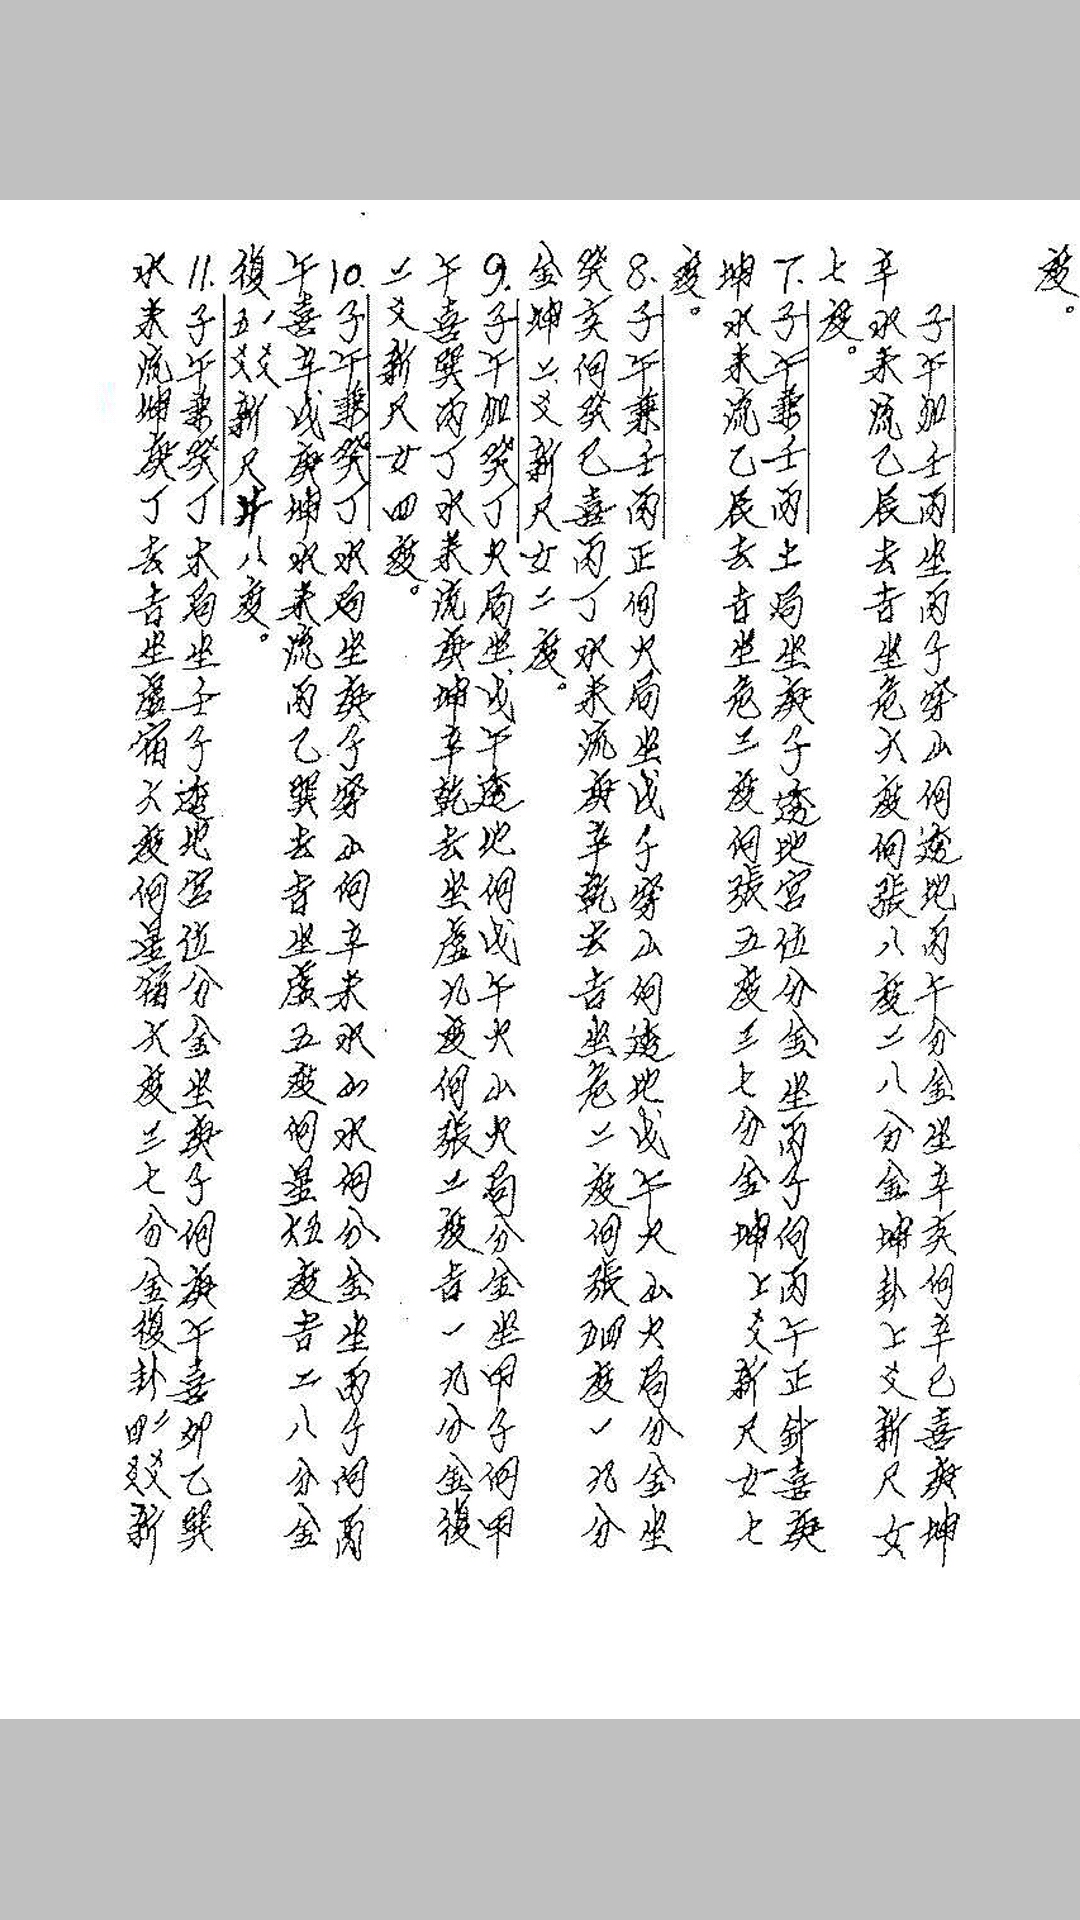 度。
子午加壬丙坐丙子穿山向透地丙午分金坐辛亥向辛巳喜庚坤
辛水來流乙辰去吉坐危六度向張八度二八分金坤卦上爻新尺女
七度。
7.子午兼壬丙土局坐庚子透地宮位分金坐丙子向丙午正針喜庚
坤水來流乙辰去吉坐危三度向張五度三七分金坤上爻新尺女七
度。
8.子午兼壬丙正向火局坐戊子穿山向透地戊午火山火局分金坐
癸亥向癸巳喜丙丁水來流庚辛乾去吉坐危二度向張五四度一九分
金坤二爻新尺女二度。
9.子午加癸丁火局坐戊午透地向戊午火山火局分金坐甲子向甲
午喜巽丙丁水來流庚坤辛乾去坐虛九度向張二度吉一九分金復
二爻新尺女四度。
10.子午兼癸丁水局坐庚子穿山向辛未水山水向分金坐丙子向丙
午喜辛戌庚坤水來流丙乙巽去吉坐虛五度向星五度吉二八分金
復五爻新尺井八度。
11.子午兼癸丁木局坐壬子透地宮位分金坐庚子向庚午喜卯乙巽
水來流坤庚丁去吉坐虛宿六度向星宿六度三七分金復卦四二爻爻新